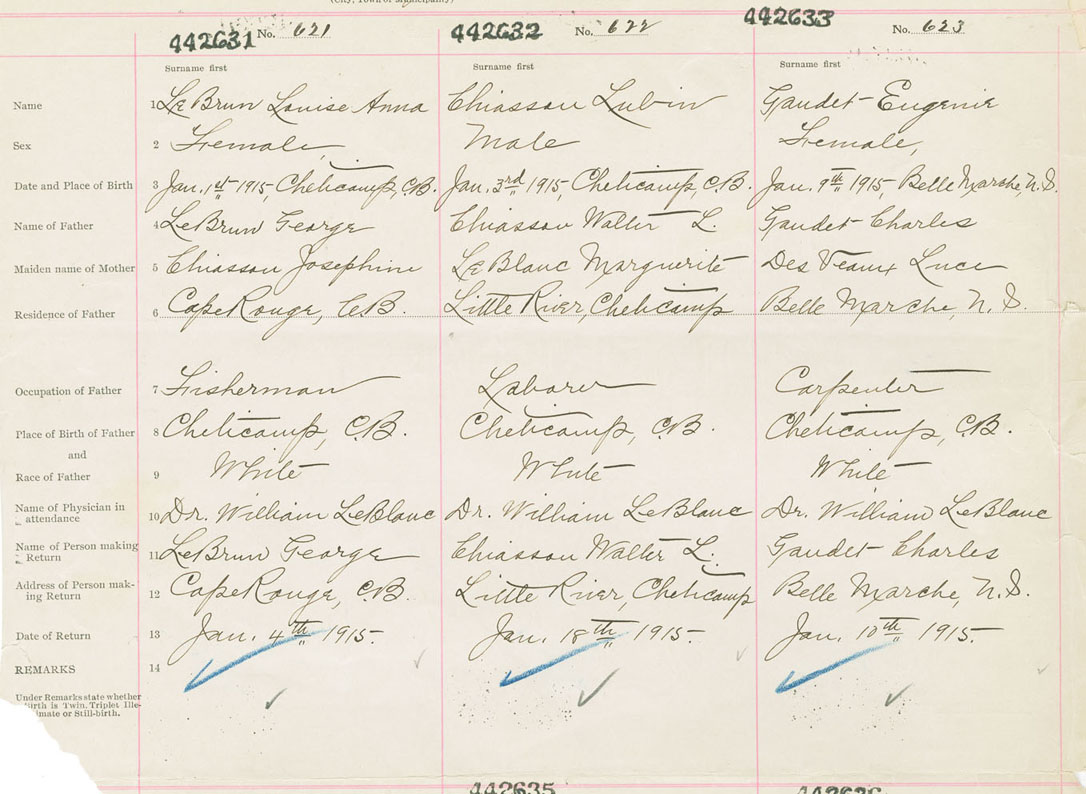 (City, Town or Municipality)
442631 No. 621 442632 No. 622 442633 No. 623
Surname first Surname first Surname first
Name 1 LeBrun Louise Anna Chiasson Lubin Gaudet Eugenie
Sex 2 Female, Male Female,
Date and Place of Birth 3 Jan. 1st 1915 Cheticamp, C.B. Jan. 3rd 1915, Cheticamp, C.B. Jan. 9th 1915, Belle Marche, N.S.
Name of Father 4 LeBrun George Chiasson Walter L. Gaudet Charles
Maiden name of Mother 5 Chiasson Josephine LeBlanc Marguerite Des Veaux Luce
Residence of Father 6 Cape Rouge, C.B. Little River, Cheticamp Belle Marche, N.S.
Occupation of Father 7 Fisherman Laborer Carpenter
Place of Birth of Father 8 Cheticamp, C.B. Cheticamp, C.B. Cheticamp, C.B.
and
Race of Father 9 White White White
Name of Physician in attendance 10 Dr. William LeBlanc Dr. William LeBlanc Dr. William LeBlanc
Name of Person making Return 11 LeBrun George Chiasson Walter L. Gaudet Charles
Address of Person mak-
ing Return 12 Cape Rouge, C.B. Little River, Cheticamp Belle Marche, N.S.
Date of Return 13 Jan. 4th 1915. Jan. 18th 1915. Jan. 10th 1915.
REMARKS 14
Under Remarks state whether
Birth is Twin, Triplet Ille-
gitimate or Still-birth.
442635